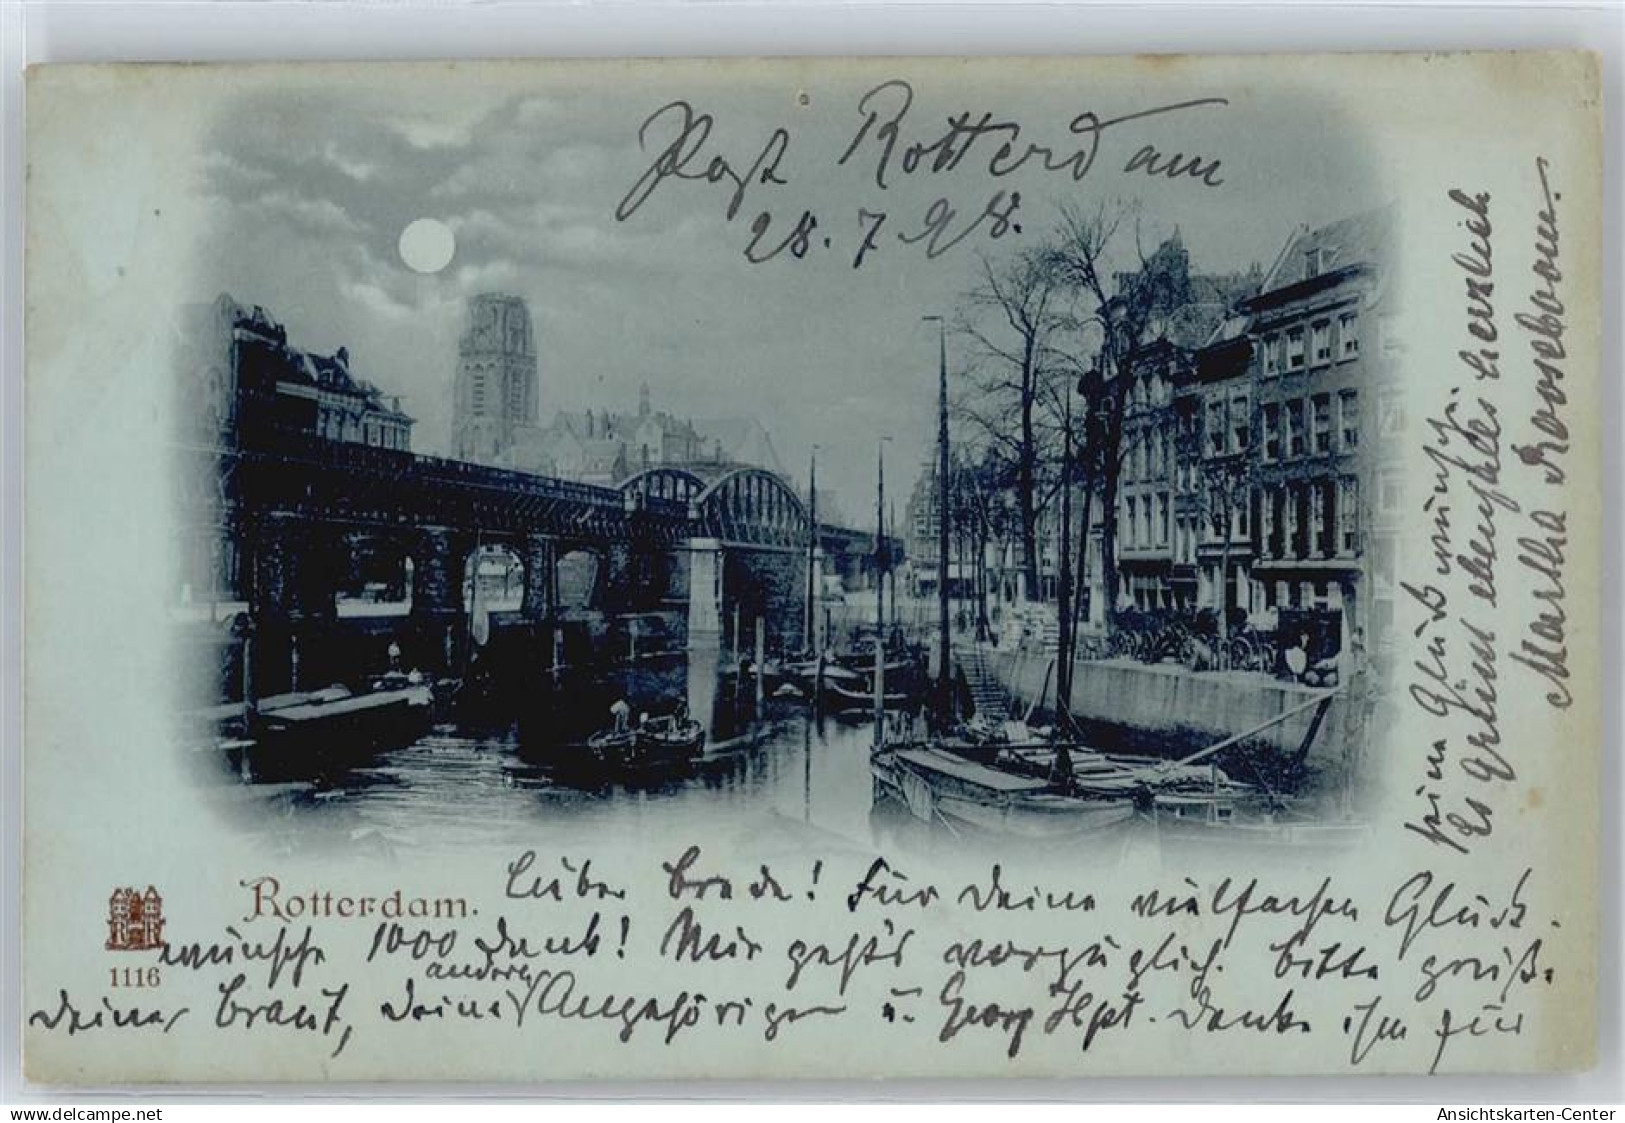 Post Rotterdam
28.7.98.
Rotterdam.
1116
Lieber Bruder! Für Deine vielfachen Glück-
wünsche 1000 Dank! Mir geht's vorzüglich. Bitte grüße
Deine Braut, Deine anderen Angehörigen u. Georg Hpt. Danke ihm für
sein Glückwunsch.
Es grüßt ebenfalls herzlich
Martha Rooseboom.
delcampe.net
Ansichtskarten-Center